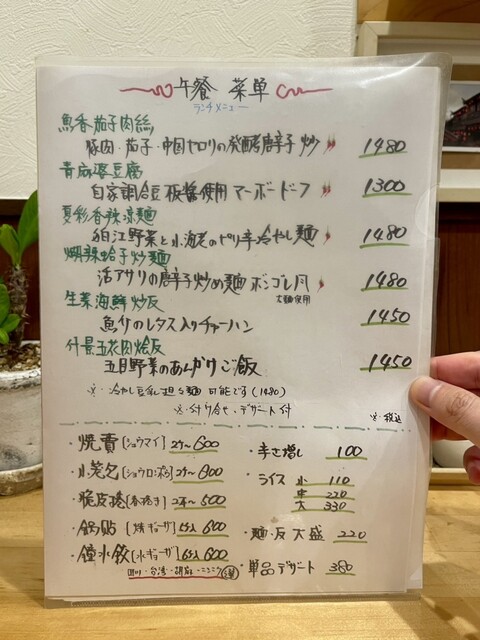 午餐 菜単
ランチメニュー
魚香茄子肉絲
豚肉・茄子・中国セロリの発酵唐辛子炒 1480
青麻婆豆腐
自家調合豆板醤使用 マーボードーフ 1300
夏彩香辣涼麺
狛江野菜と小海老のピリ辛冷やし麺 1480
蛤子炒麺
活アサリの唐辛子炒め麺 ボンゴレ風 1480
太麺使用
生菜海鮮炒反
魚介のレタス入りチャーハン 1450
什景五花肉烩反
五目野菜のあんかけご飯 1450
※ 冷やし豆乳担々麺 可能です(1480)
※ 付け合せ、デザート付
※ 税込
・焼売[シュウマイ] 2ケ〜600
・小笼包[ショウロンポウ] 2ケ〜800
・脆皮捲[春捲き] 2本〜500
・鍋貼[焼ギョーザ] 600
・鐘水餃[水ギョーザ] 600
四川・台湾・胡麻
・辛さ増し 100
・ライス 小 110
中 220
大 330
・麺・反 大盛 220
・単品デザート 380